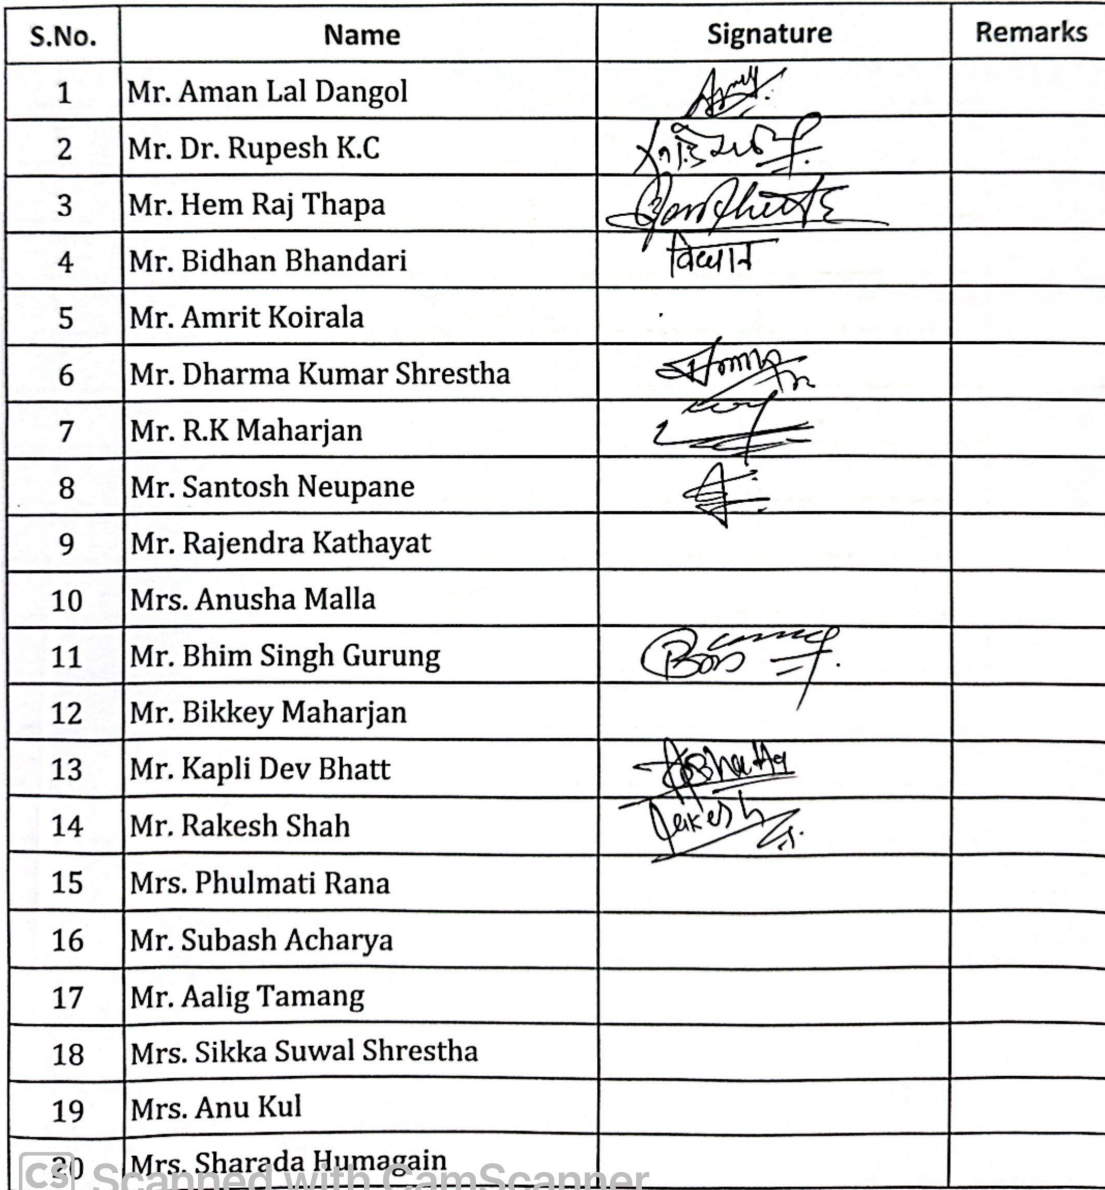 S.No. Name Signature Remarks
1 Mr. Aman Lal Dangol
2 Mr. Dr. Rupesh K.C
3 Mr. Hem Raj Thapa
4 Mr. Bidhan Bhandari विधान
5 Mr. Amrit Koirala
6 Mr. Dharma Kumar Shrestha
7 Mr. R.K Maharjan
8 Mr. Santosh Neupane
9 Mr. Rajendra Kathayat
10 Mrs. Anusha Malla
11 Mr. Bhim Singh Gurung
12 Mr. Bikkey Maharjan
13 Mr. Kapli Dev Bhatt
14 Mr. Rakesh Shah Rakesh
15 Mrs. Phulmati Rana
16 Mr. Subash Acharya
17 Mr. Aalig Tamang
18 Mrs. Sikka Suwal Shrestha
19 Mrs. Anu Kul
20 Mrs. Sharada Humagain
CS Scanned with CamScanner